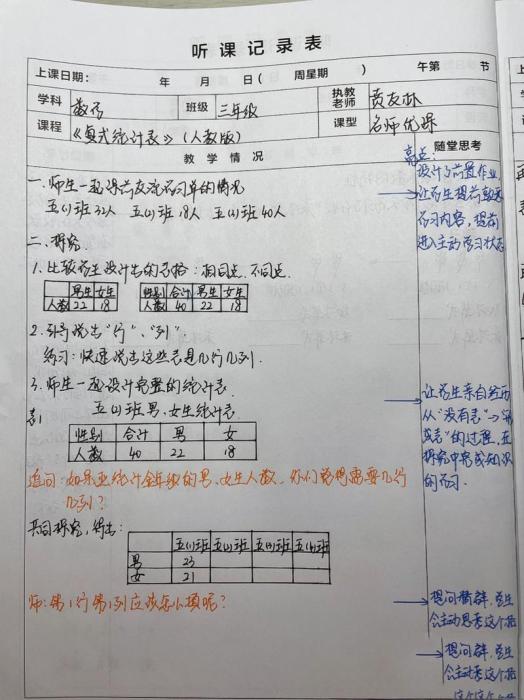 听课记录表
上课日期： 年 月 日（ 周星期 ） 午第 节
学科 数学 班级 三年级 执教老师 贲友林
课程 《复式统计表》（人教版） 课型 名师优课
教学情况 随堂思考
亮点：
设计了前置作业
让学生提前
学习内容，提前
进入主动学习状态
一、师生一起课前交流学习单的情况
五(1)班32人 五(2)班18人 五(3)班40人
二、探究
1. 比较学生设计出的表格：相同点、不同点.
男生 女生
人数 22 18
性别 合计 男生 女生
人数 40 22 18
2. 引导说出“行”、“列”
练习：快速说出这些表是几行几列.
3. 师生一起设计完整的统计表.
表1 五(3)班男、女生统计表.
性别 合计 男 女
人数 40 22 18
让学生亲自经历
从“没有表”→“
表”的过程，在
探究中完成知识
的学习.
追问：如果要统计全年级的男、女生人数，你们觉得需要几行
几列？
共同探究，得出：
五(1)班 五(2)班 五(3)班 五(4)班
男 23
女 21
师：第1行第1列应该怎么填呢？
想问群群，学生
会主动思考这个
想问群，学生
会主动思考这个